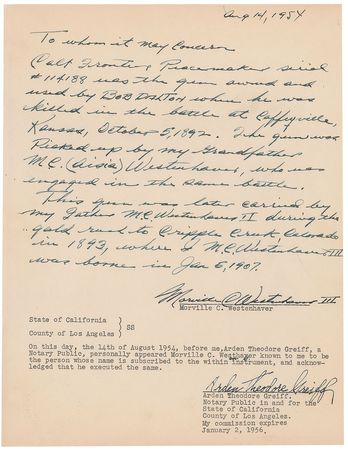 Aug 14, 1954
To whom it may Concern
Colt Frontier Peacemaker serial
#114188 was the gun owned and
used by BOB DALTON when he was
killed in the battle at Coffyville,
Kansas, October 5, 1892. The gun was
Picked up by my Grandfather
M.C. (Aisia) Westenhaver, who was
engaged in the same battle.
This gun was later carried by
my Father M.C. Westenhaver II during the
gold rush to Cripple Creek, Colorado
in 1893, where I M.C. Westenhaver III
was born in Jan 5, 1907.
Morville C. Westenhaver III
Morville C. Westenhaver
State of California
County of Los Angeles } SS
On this day, the 14th of August 1954, before me, Arden Theodore Greiff, a
Notary Public, personally appeared Morville C. Westhaver known to me to be
the person whose name is subscribed to the within instrument, and acknow-
ledged that he executed the same.
Arden Theodore Greiff
Arden Theodore Greiff.
Notary Public in and for the
State of California
County of Los Angeles.
My commission expires
January 2, 1956.